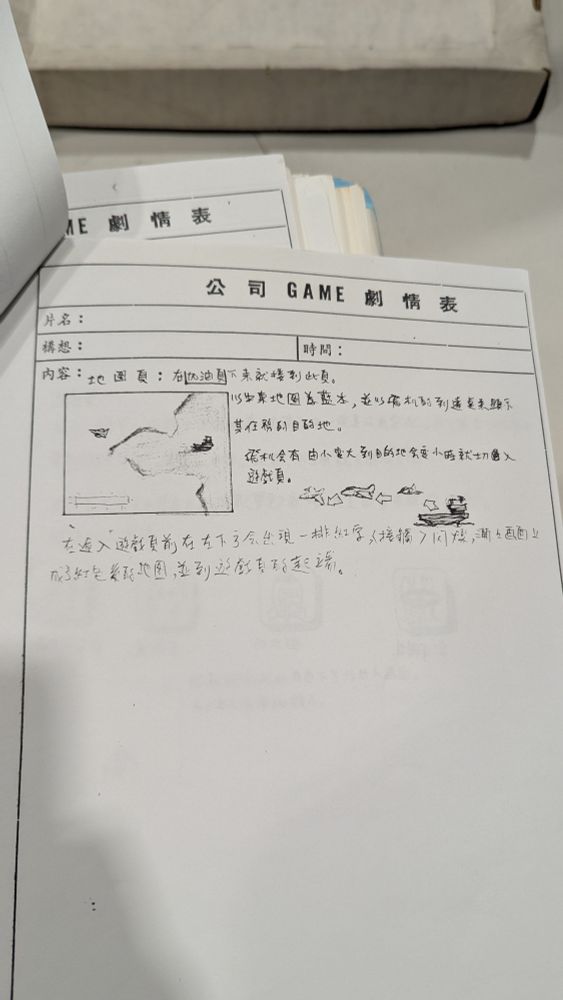 ME 劇 情 表
公 司 GAME 劇 情 表
片名：
構想：
時間：
內容：地圖頁：在加油頁下來就接到此頁。
以中東地圖為藍本，並以飛机的到達點來顯示
其任務的目的地。
飛机会有由小变大到目的地会变小時就切入
遊戲頁。
在進入遊戲頁前在左下方会出現一排紅字《接觸》閃爍，漸上画面上
成了紅色的地圖，並到遊戲頁的起端。